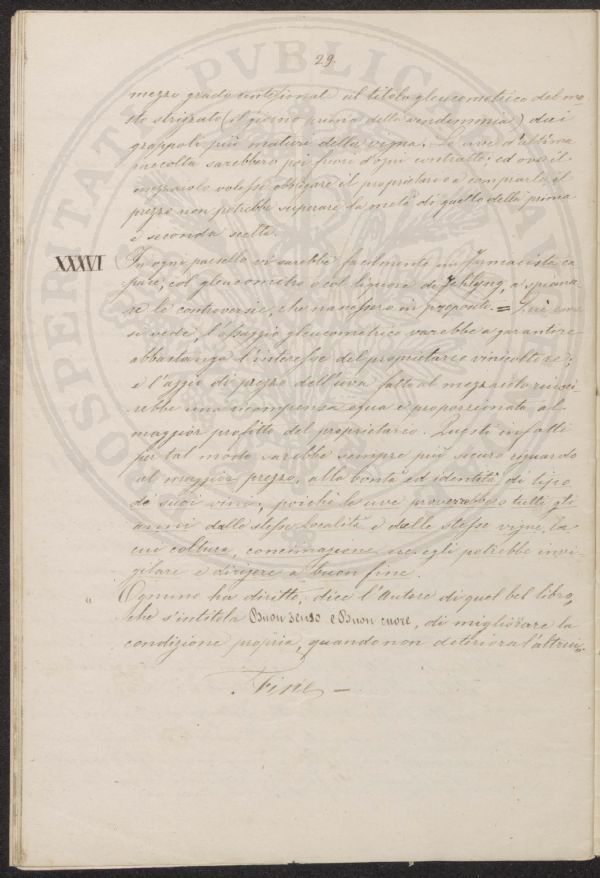 29.
mezzo grado centesimal al titolo gleucometrico del mo-
sto strizzato (il giorno prima della vendemmia) dai
grappoli più maturi della vigna. Le uve d'ultima
raccolta sarebbero poi fuori d'ogni contratto; ed ove il
mezzaiolo volesse obbligare il proprietario a comprarle, il
prezzo non potrebbe superare la metà di quello della prima
e seconda scelta.
XXXVI In ogni paesello vi sarebbe facilmente un Farmacista ca
pace, col gleucometro o col liquore di Fehlyng, a spiana
re le controversie, che nascessero in proposito. =
si vede, l'assaggio gleucometrico varrebbe a garantire
abbastanza l'interesse del proprietario vinicoltore;
e l'aggio di prezzo dell'uva fatto al mezzaiolo riusci-
rebbe una ricompensa equa e proporzionata al
maggior profitto del proprietario. Questi infatti
per tal modo sarebbe sempre più sicuro riguardo
al maggior prezzo, alla bontà ed identità di tipo
de' suoi vini, poichè le uve proverrebbero tutti gli
anni dalle stesse località e dalle stesse vigne, la
cui coltura, concimazione, ecc. egli potrebbe invi-
gilare e dirigere a buon fine.
" Ognuno ha diritto, dice l'Autore di quel bel libro,
che s'intitola Buon senso e Buon cuore, di migliorare la
condizione propria, quando non deteriora l'altrui".
Fine
PROSPERITATI PVBLICAE AVGENDAE